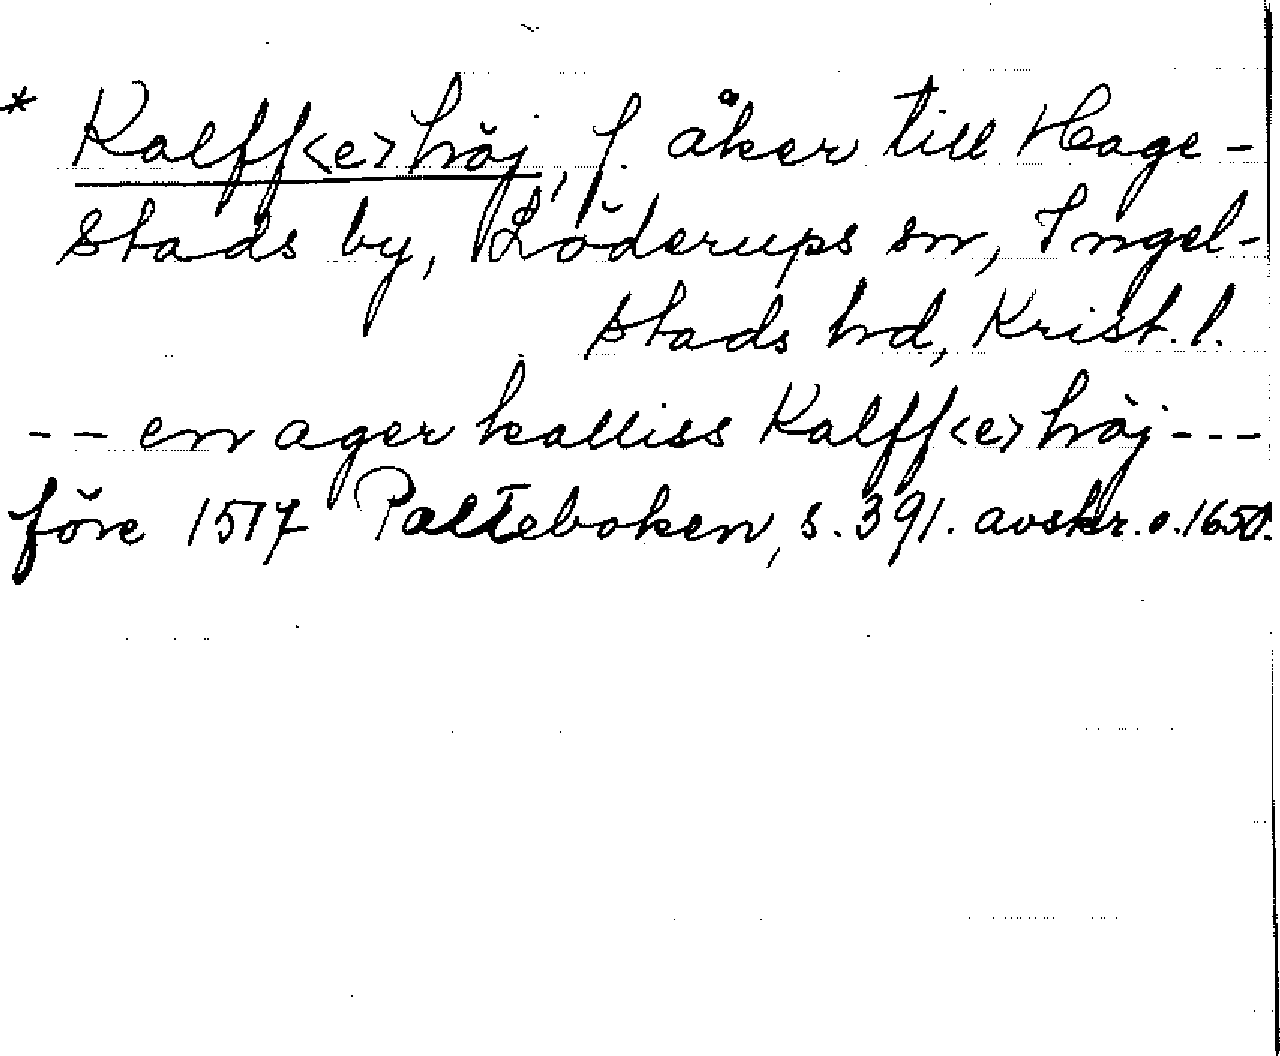 * Kalff<e>höj, f. åker till Hage-
stads by, Löderups sn, Ingel-
stads hd, Krist. l.
-- en ager kalliss Kalff<e>höj---
före 1517 Palteboken, s. 391. avskr. o. 1650.